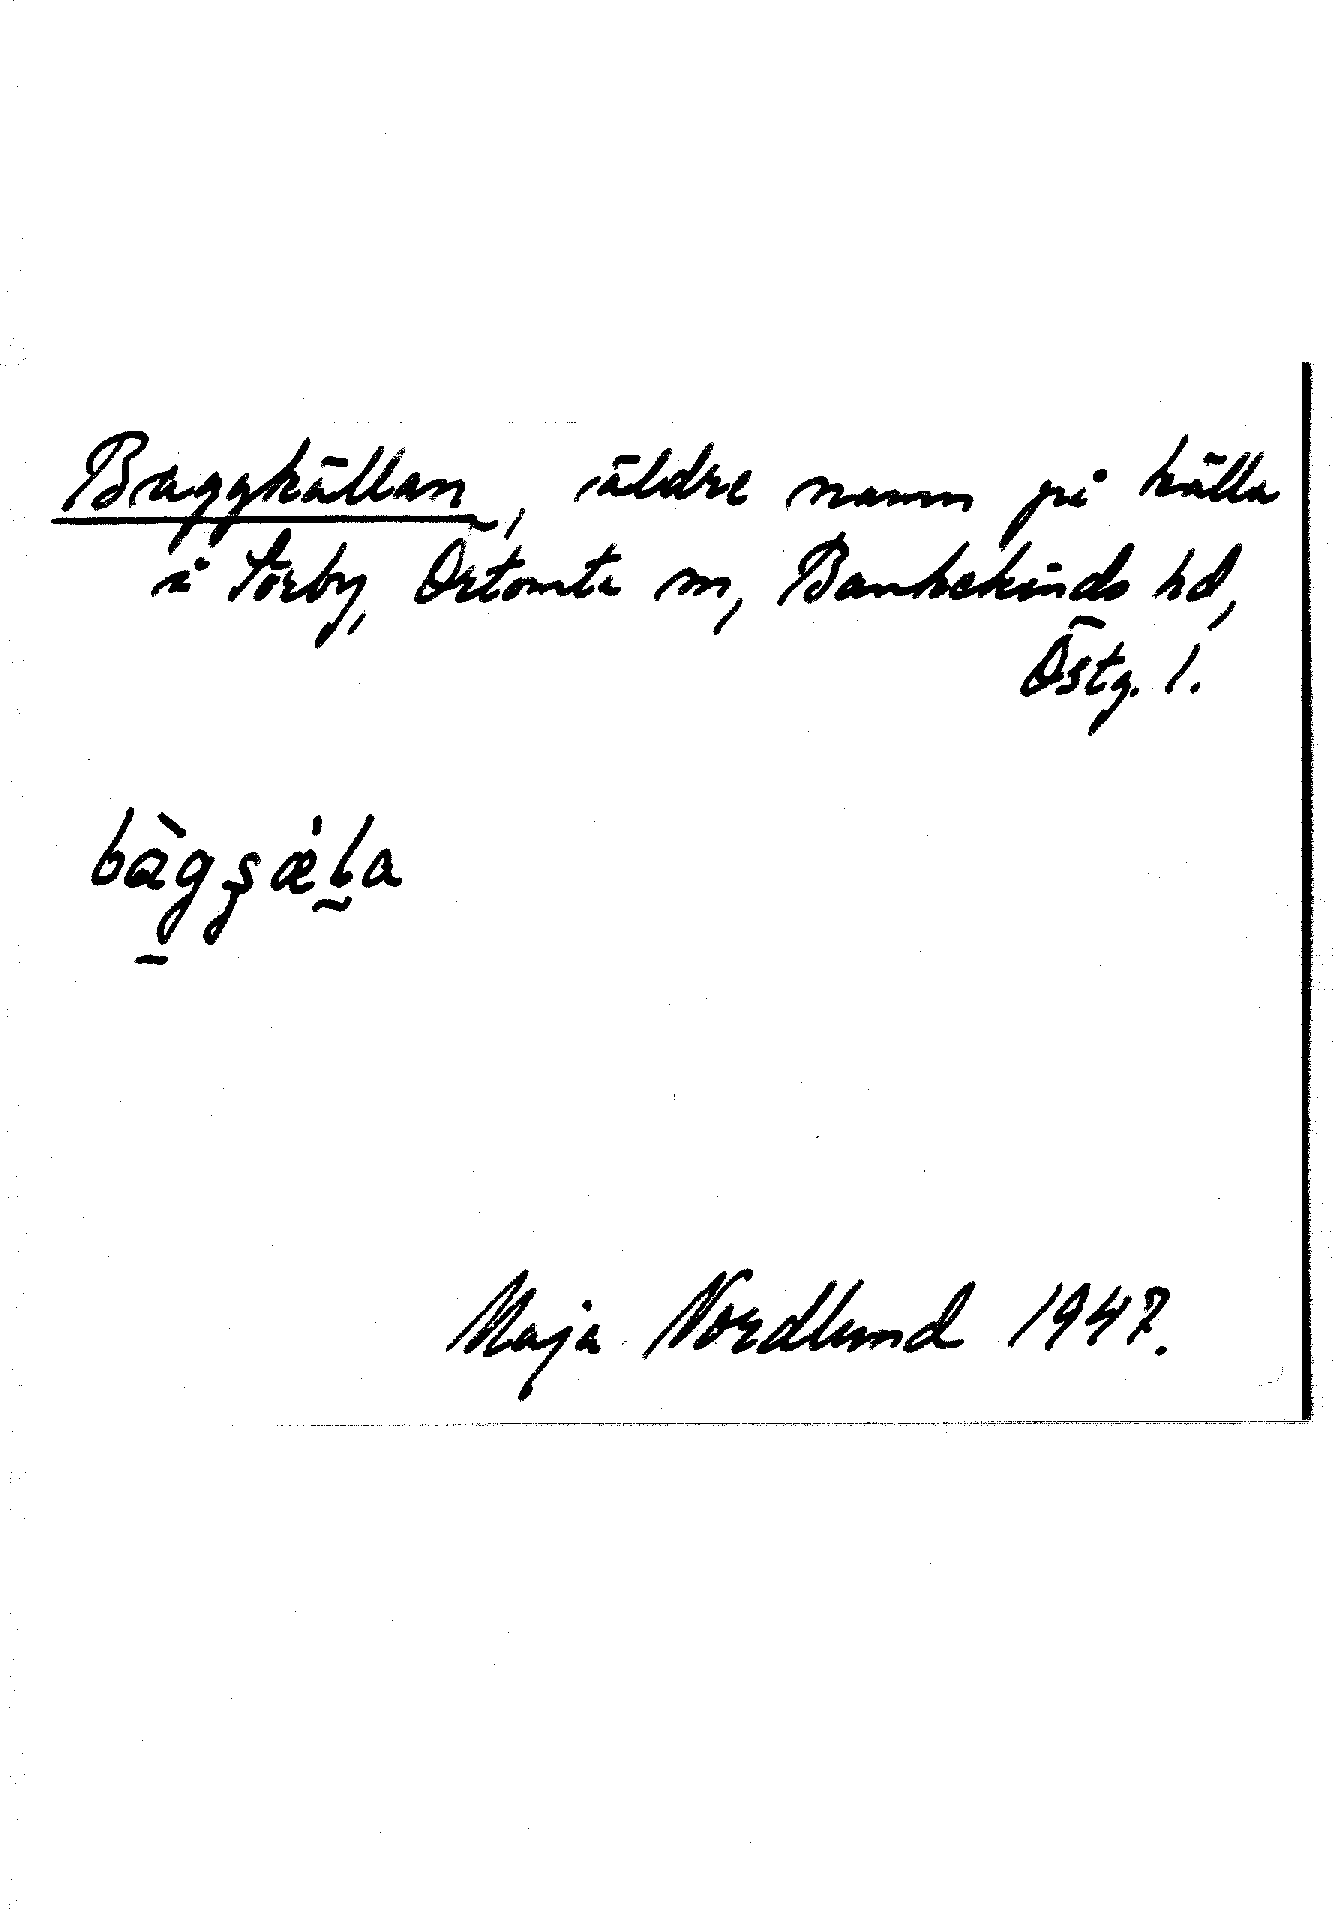 Baggkällan, äldre namn på källa
i Sörby, Örtomta sn, Bankekinds hd,
Östg. l.
Maja Nordlund 1947.